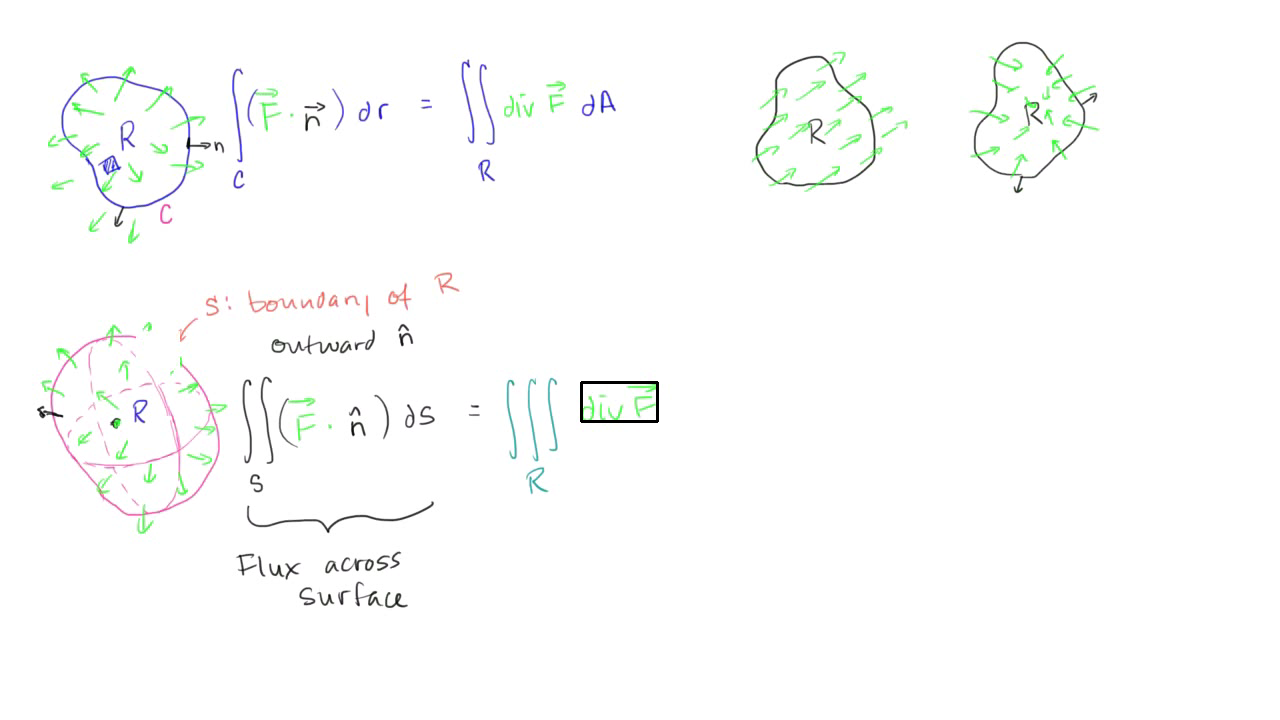 R
n
C
∫_C (F⃗ · n⃗) dr = ∬_R div F⃗ dA
R
R
S: boundary of R
outward n̂
R
∬_S (F⃗ · n̂) dS = ∭_R div F⃗
Flux across
surface